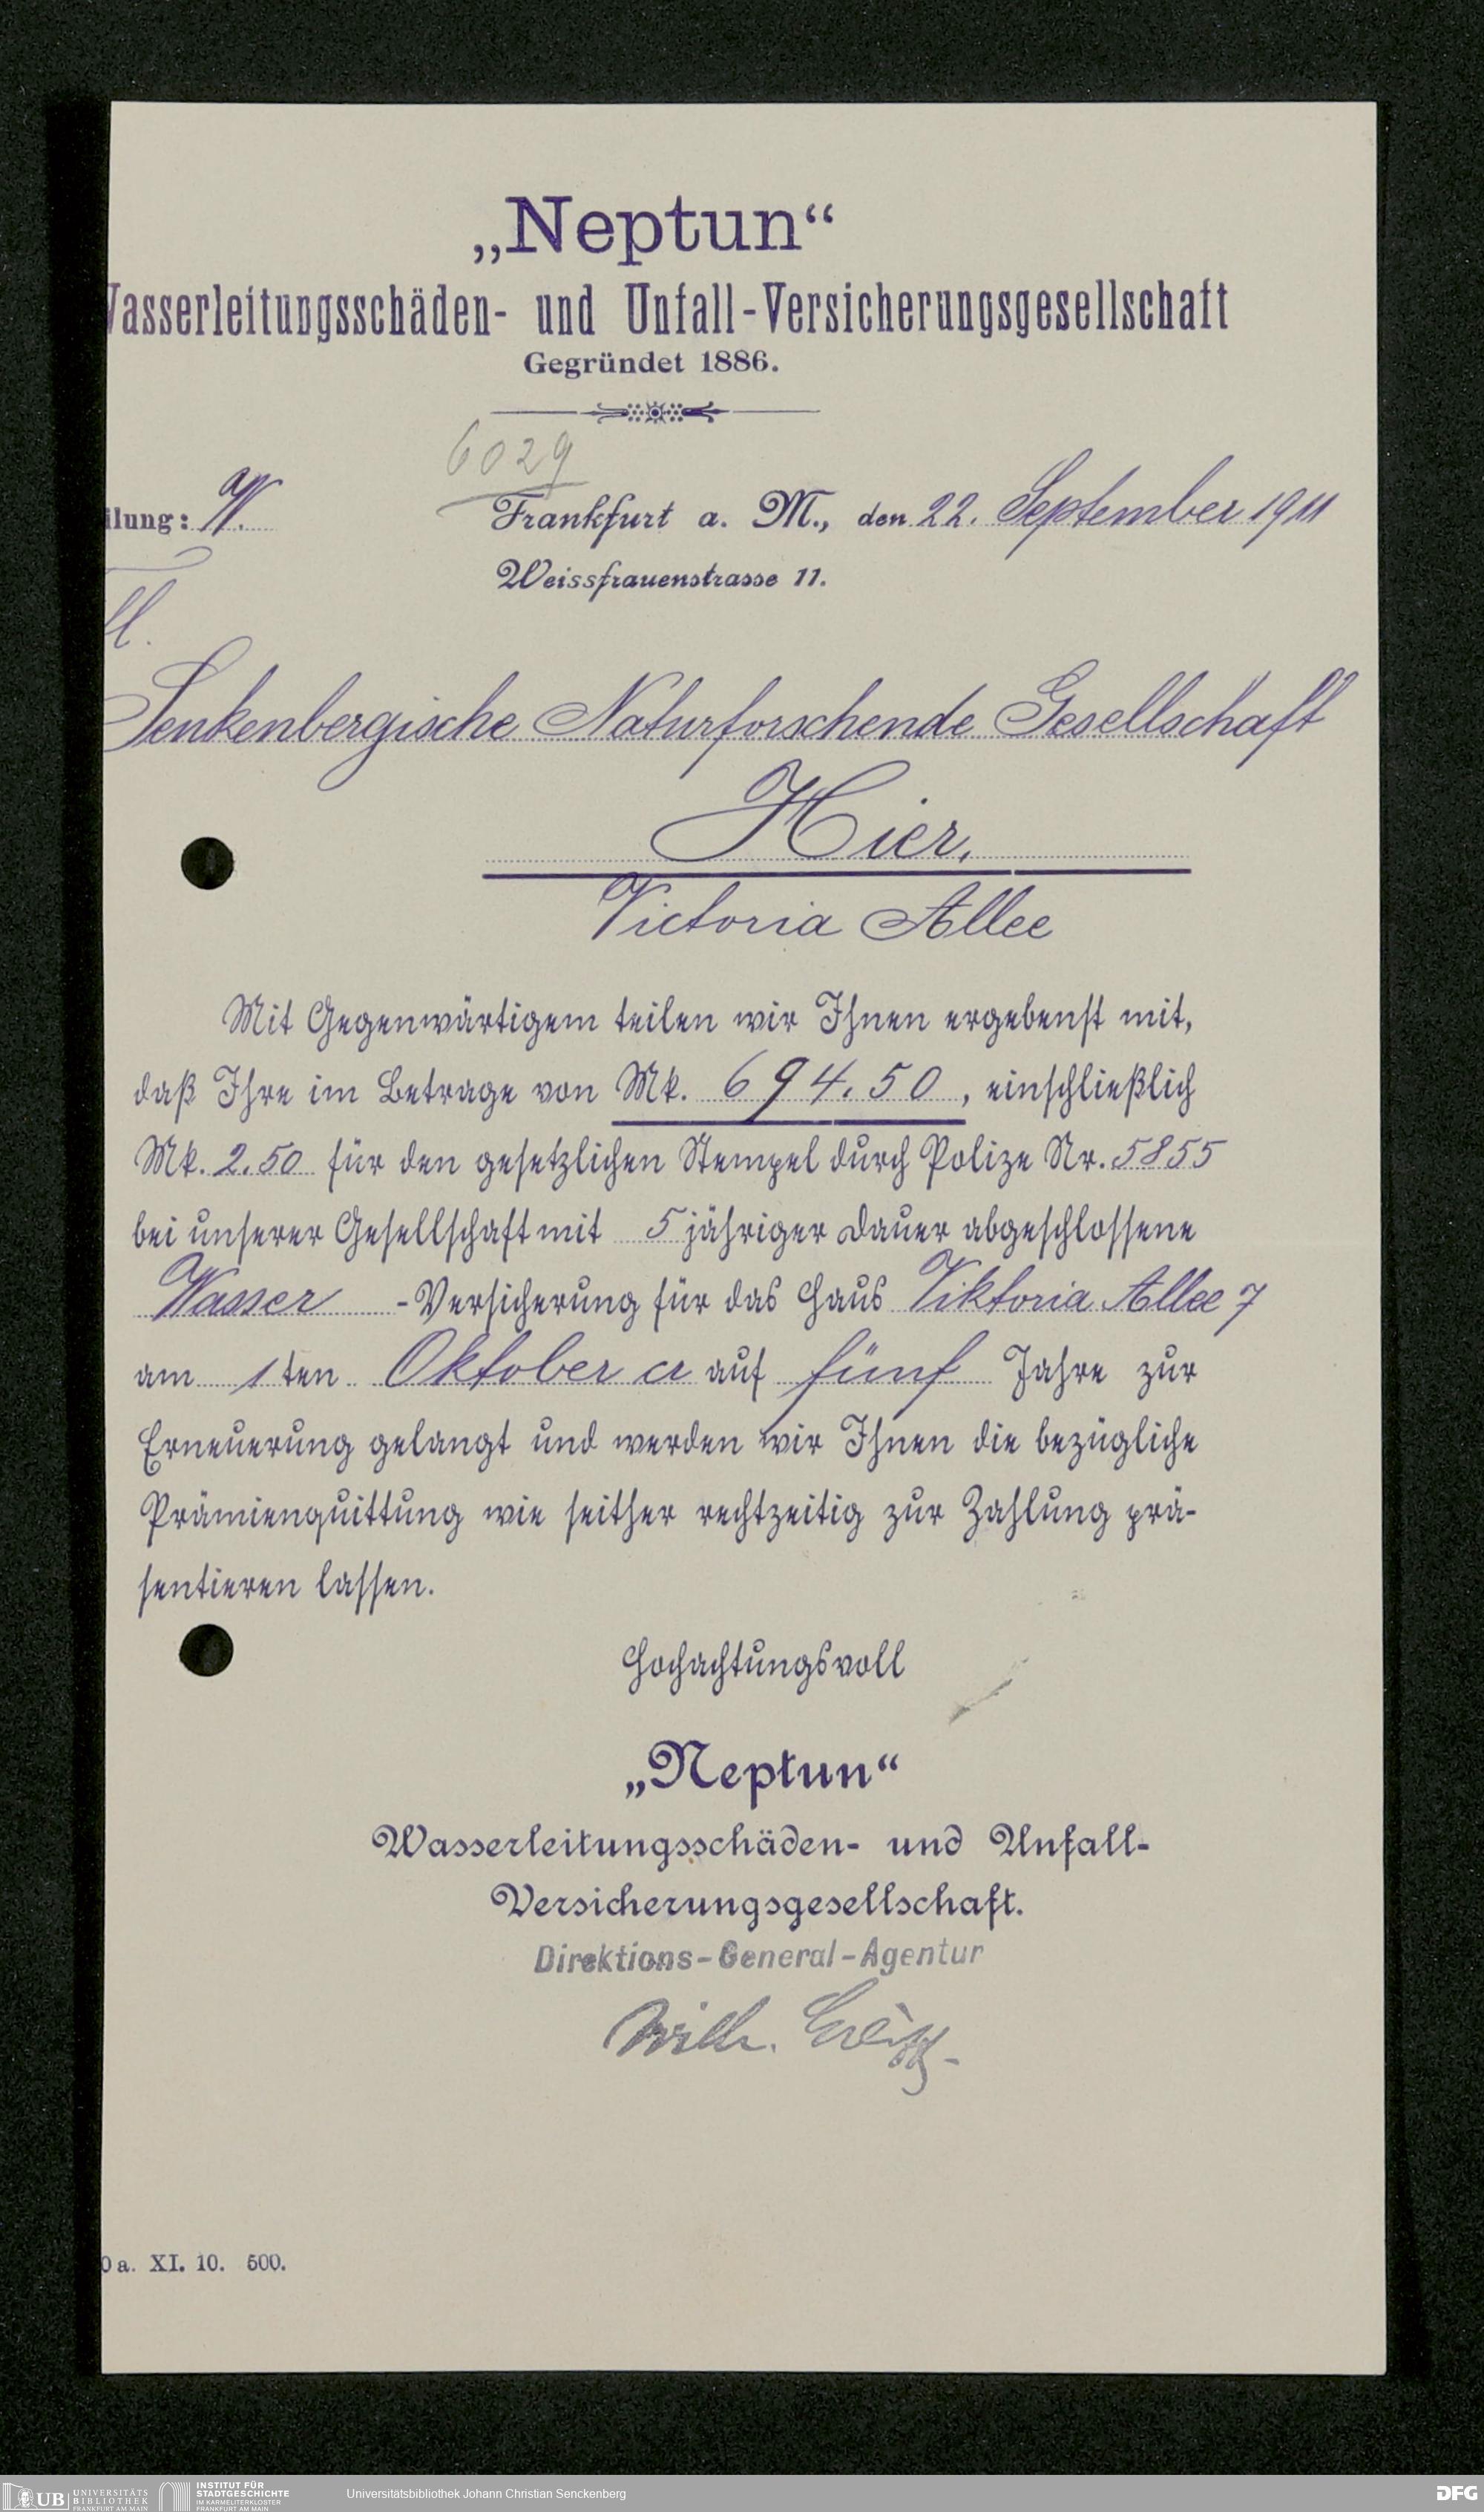 „Neptun“
Wasserleitungsschäden- und Unfall-Versicherungsgesellschaft
Gegründet 1886.
6029
ilung: W.
Frankfurt a. M., den 22. September 1911
Weissfrauenstrasse 11.
Senkenbergische Naturforschende Gesellschaft
Hier.
Victoria Allee
Mit Gegenwärtigem teilen wir Ihnen ergebenst mit,
daß Ihre im Betrage von Mk. 694.50, einschließlich
Mk. 2.50 für den gesetzlichen Stempel durch Polize Nr. 5855
bei unserer Gesellschaft mit 5 jähriger Dauer abgeschlossene
Wasser -Versicherung für das Haus Viktoria Allee 7
am 1ten Oktober cr auf fünf Jahre zur
Erneuerung gelangt und werden wir Ihnen die bezügliche
Prämienquittung wie seither rechtzeitig zur Zahlung prä-
sentieren lassen.
Hochachtungsvoll
„Neptun“
Wasserleitungsschäden- und Unfall-
Versicherungsgesellschaft.
Direktions-General-Agentur
Wilh.
0 a. XI. 10. 500.
UB UNIVERSITÄTS BIBLIOTHEK FRANKFURT AM MAIN
INSTITUT FÜR STADTGESCHICHTE IM KARMELITERKLOSTER FRANKFURT AM MAIN
Universitätsbibliothek Johann Christian Senckenberg
DFG